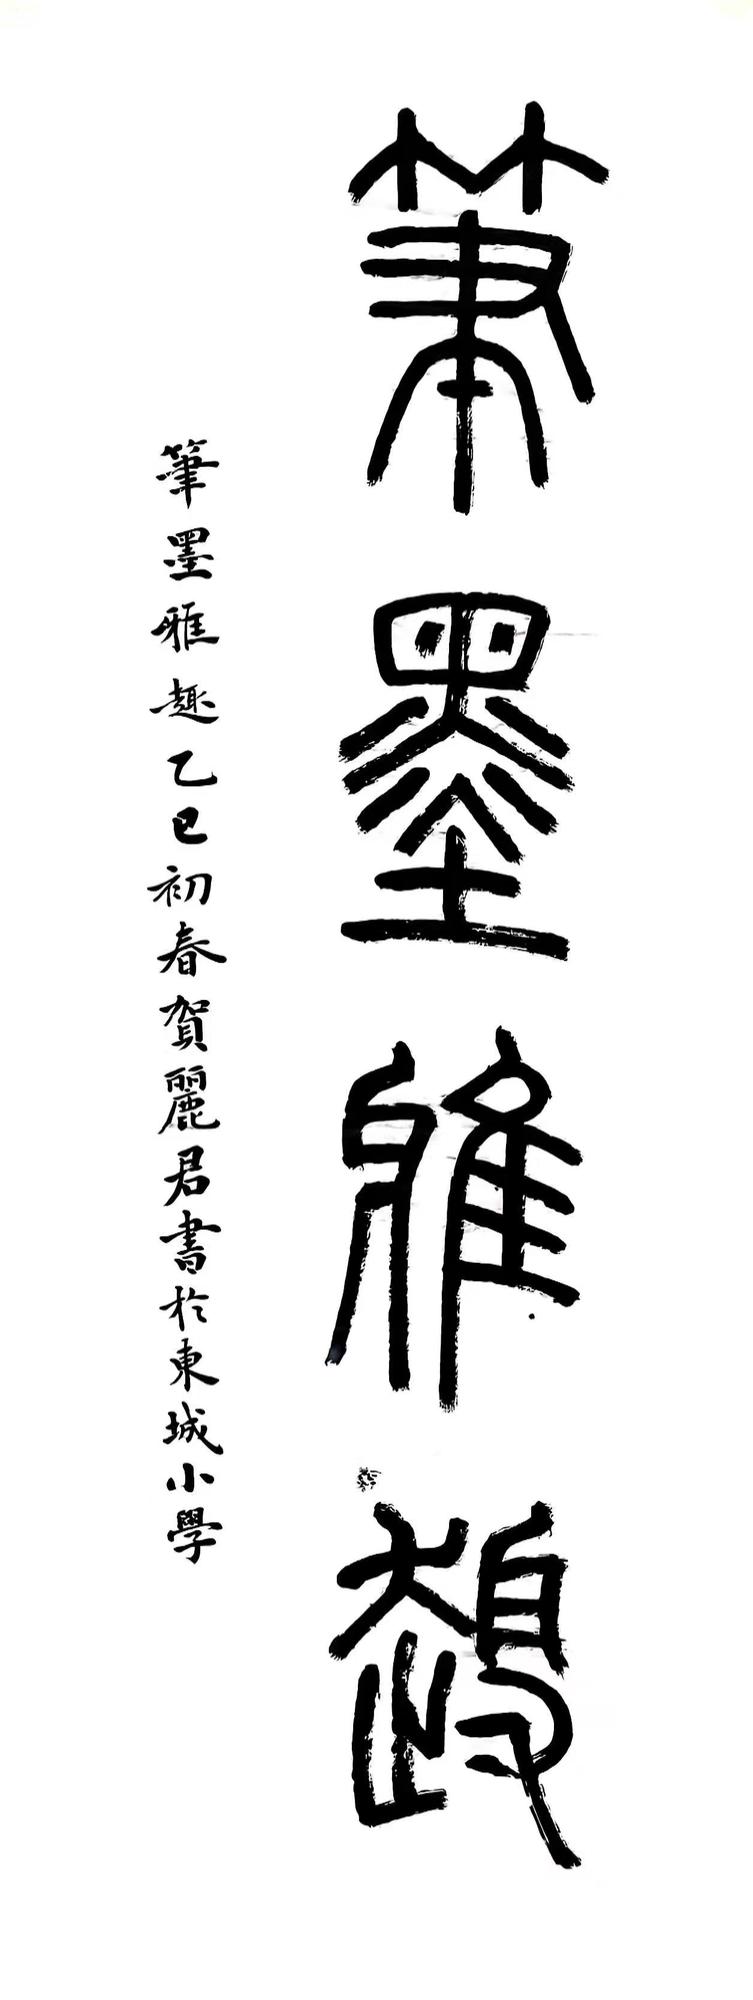 筆墨雅趣
筆墨雅趣乙巳初春賀麗君書於東城小學